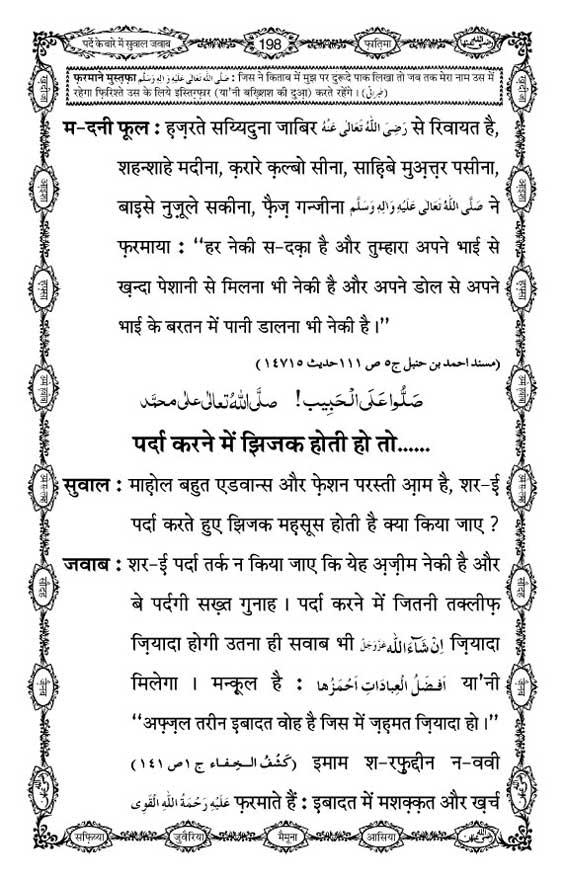 पर्दे के बारे में सुवाल जवाब
198
फ़ातिमा
फ़रमाने मुस्तफ़ा صَلَّى اللهُ تَعَالٰى عَلَيْهِ وَاٰلِهٖ وَسَلَّم : जिस ने किताब में मुझ पर दुरूदे पाक लिखा तो जब तक मेरा नाम उस में
रहेगा फ़िरिश्ते उस के लिये इस्तिग़्फ़ार (या'नी बख़्शिश की दुआ) करते रहेंगे । (طبرانی)
म-दनी फूल : हज़रते सय्यिदुना जाबिर رَضِىَ اللهُ تَعَالٰى عَنْهُ से रिवायत है,
शहन्शाहे मदीना, क़रारे क़ल्बो सीना, साहिबे मुअ़त्तर पसीना,
बाइसे नुज़ूले सकीना, फ़ैज़ गन्जीना صَلَّى اللهُ تَعَالٰى عَلَيْهِ وَاٰلِهٖ وَسَلَّم ने
फ़रमाया : “हर नेकी स-दक़ा है और तुम्हारा अपने भाई से
ख़न्दा पेशानी से मिलना भी नेकी है और अपने डोल से अपने
भाई के बरतन में पानी डालना भी नेकी है ।”
(مسند احمد بن حنبل ج۵ ص ۱۱۱ حدیث ۱٤۷۱۵)
صَلُّوا عَلَى الْحَبِيب! صلَّى اللهُ تعالٰى على محمَّد
पर्दा करने में झिजक होती हो तो......
सुवाल : माहोल बहुत एडवान्स और फ़ेशन परस्ती आ़म है, शर-ई
पर्दा करते हुए झिजक महसूस होती है क्या किया जाए ?
जवाब : शर-ई पर्दा तर्क न किया जाए कि येह अ़ज़ीम नेकी है और
बे पर्दगी सख़्त गुनाह । पर्दा करने में जितनी तक्लीफ़
ज़ियादा होगी उतना ही सवाब भी اِنْ شَآءَاللّٰه عَزَّوَجَلَّ ज़ियादा
मिलेगा । मन्क़ूल है : اَفضَلُ الْعِبَادَاتِ اَحْمَزُها या'नी
“अफ़्ज़ल तरीन इबादत वोह है जिस में ज़हमत ज़ियादा हो ।”
(كَشْفُ الـخِفاء ج ۱ ص ۱٤۱) इमाम श-रफ़ुद्दीन न-ववी
عَلَيْهِ رَحْمَةُ اللهِ الْقَوِى फ़रमाते हैं : इबादत में मशक़्क़त और ख़र्च
सफ़िय्या
जुवैरिया
मैमूना
आसिया